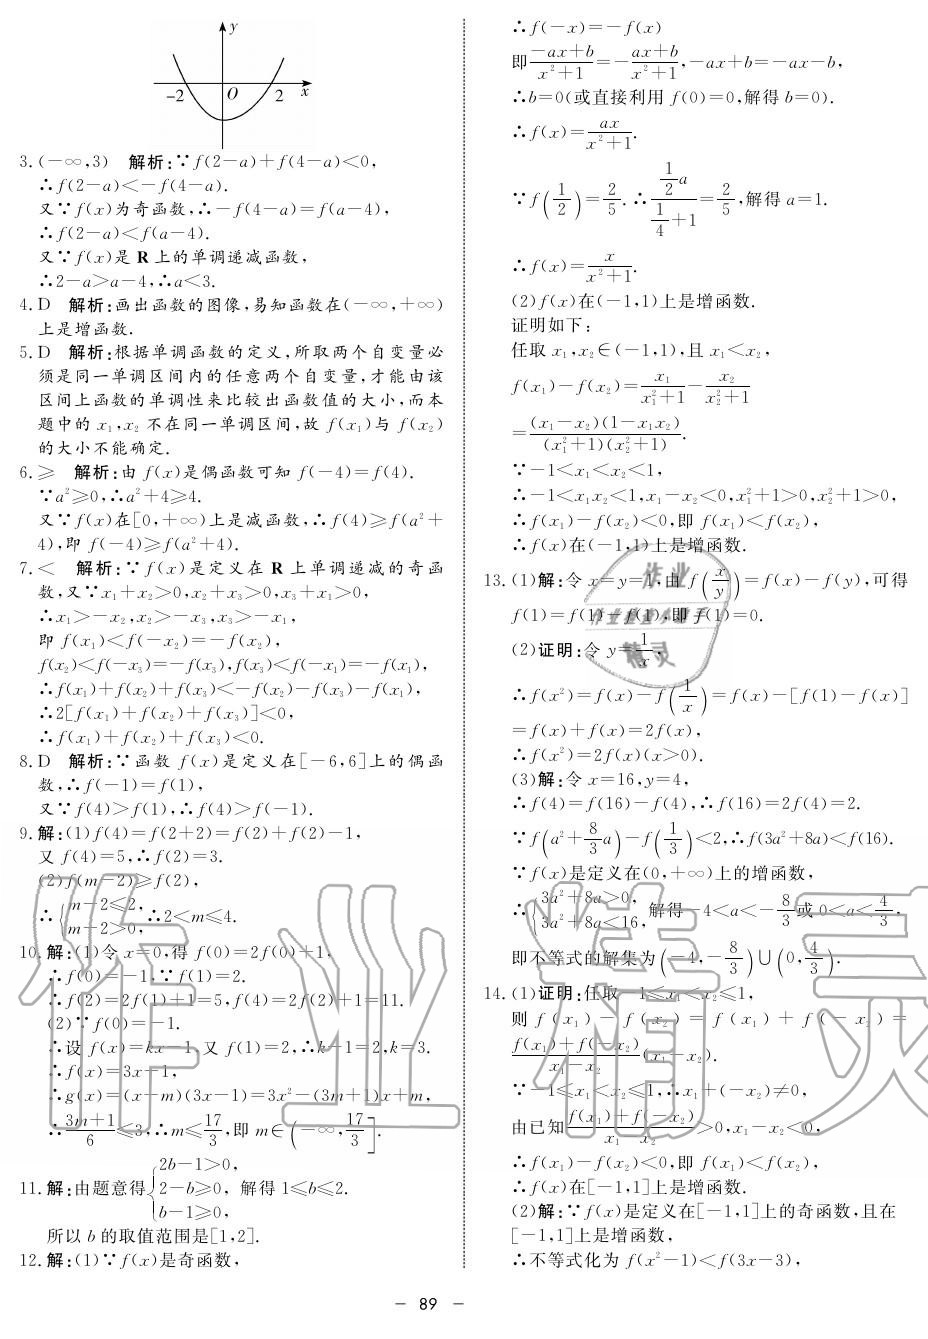 y
-2 O 2 x
3. (-∞,3) 解析:∵f(2-a)+f(4-a)<0,
∴f(2-a)<-f(4-a).
又∵f(x)为奇函数,∴-f(4-a)=f(a-4),
∴f(2-a)<f(a-4).
又∵f(x)是 R 上的单调递减函数,
∴2-a>a-4,∴a<3.
4. D 解析:画出函数的图像,易知函数在(-∞,+∞)
上是增函数.
5. D 解析:根据单调函数的定义,所取两个自变量必
须是同一单调区间内的任意两个自变量,才能由该
区间上函数的单调性来比较出函数值的大小,而本
题中的 x₁,x₂ 不在同一单调区间,故 f(x₁)与 f(x₂)
的大小不能确定.
6. ≥ 解析:由 f(x)是偶函数可知 f(-4)=f(4).
∵a²≥0,∴a²+4≥4.
又∵f(x)在[0,+∞)上是减函数,∴f(4)≥f(a²+
4),即 f(-4)≥f(a²+4).
7. < 解析:∵f(x)是定义在 R 上单调递减的奇函
数,又∵x₁+x₂>0,x₂+x₃>0,x₃+x₁>0,
∴x₁>-x₂,x₂>-x₃,x₃>-x₁,
即 f(x₁)<f(-x₂)=-f(x₂),
f(x₂)<f(-x₃)=-f(x₃),f(x₃)<f(-x₁)=-f(x₁),
∴f(x₁)+f(x₂)+f(x₃)<-f(x₂)-f(x₃)-f(x₁),
∴2[f(x₁)+f(x₂)+f(x₃)]<0,
∴f(x₁)+f(x₂)+f(x₃)<0.
8. D 解析:∵函数 f(x)是定义在[-6,6]上的偶函
数,∴f(-1)=f(1),
又∵f(4)>f(1),∴f(4)>f(-1).
9. 解:(1)f(4)=f(2+2)=f(2)+f(2)-1,
又 f(4)=5,∴f(2)=3.
(2)f(m-2)≥f(2),
∴{m-2≤2, m-2>0, ∴2<m≤4.
10. 解:(1)令 x=0,得 f(0)=2f(0)+1,
∴f(0)=-1,∵f(1)=2.
∴f(2)=2f(1)+1=5,f(4)=2f(2)+1=11.
(2)∵f(0)=-1.
∴设 f(x)=kx-1,又 f(1)=2,∴k-1=2,k=3.
∴f(x)=3x-1,
∴g(x)=(x-m)(3x-1)=3x²-(3m+1)x+m,
∴(3m+1)/6≤3,∴m≤17/3,即 m∈(-∞,17/3].
11. 解:由题意得{2b-1>0, 2-b≥0, b-1≥0, 解得 1≤b≤2.
所以 b 的取值范围是[1,2].
12. 解:(1)∵f(x)是奇函数,
∴f(-x)=-f(x)
即(-ax+b)/(x²+1)=-(ax+b)/(x²+1),-ax+b=-ax-b,
∴b=0(或直接利用 f(0)=0,解得 b=0).
∴f(x)=ax/(x²+1).
∵f(1/2)=2/5.∴(1/2 a)/(1/4+1)=2/5,解得 a=1.
∴f(x)=x/(x²+1).
(2)f(x)在(-1,1)上是增函数.
证明如下:
任取 x₁,x₂∈(-1,1),且 x₁<x₂,
f(x₁)-f(x₂)=x₁/(x₁²+1)-x₂/(x₂²+1)
=(x₁-x₂)(1-x₁x₂)/(x₁²+1)(x₂²+1).
∵-1<x₁<x₂<1,
∴-1<x₁x₂<1,x₁-x₂<0,x₁²+1>0,x₂²+1>0,
∴f(x₁)-f(x₂)<0,即 f(x₁)<f(x₂),
∴f(x)在(-1,1)上是增函数.
13. (1)解:令 x=y=1,由 f(x/y)=f(x)-f(y),可得
f(1)=f(1)-f(1),即 f(1)=0.
(2)证明:令 y=1/x,
∴f(x²)=f(x)-f(1/x)=f(x)-[f(1)-f(x)]
=f(x)+f(x)=2f(x),
∴f(x²)=2f(x)(x>0).
(3)解:令 x=16,y=4,
∴f(4)=f(16)-f(4),∴f(16)=2f(4)=2.
∵f(a²+8/3 a)-f(1/3)<2,∴f(3a²+8a)<f(16).
∵f(x)是定义在(0,+∞)上的增函数,
∴{3a²+8a>0, 3a²+8a<16, 解得-4<a<-8/3或 0<a<4/3,
即不等式的解集为(-4,-8/3)∪(0,4/3).
14. (1)证明:任取-1≤x₁<x₂≤1,
则 f(x₁)-f(x₂)=f(x₁)+f(-x₂)=
(f(x₁)+f(-x₂))/(x₁-x₂)(x₁-x₂).
∵-1≤x₁<x₂≤1,∴x₁+(-x₂)≠0,
由已知(f(x₁)+f(-x₂))/(x₁-x₂)>0,x₁-x₂<0,
∴f(x₁)-f(x₂)<0,即 f(x₁)<f(x₂),
∴f(x)在[-1,1]上是增函数.
(2)解:∵f(x)是定义在[-1,1]上的奇函数,且在
[-1,1]上是增函数,
∴不等式化为 f(x²-1)<f(3x-3),
作业精灵
作业
精灵
- 89 -